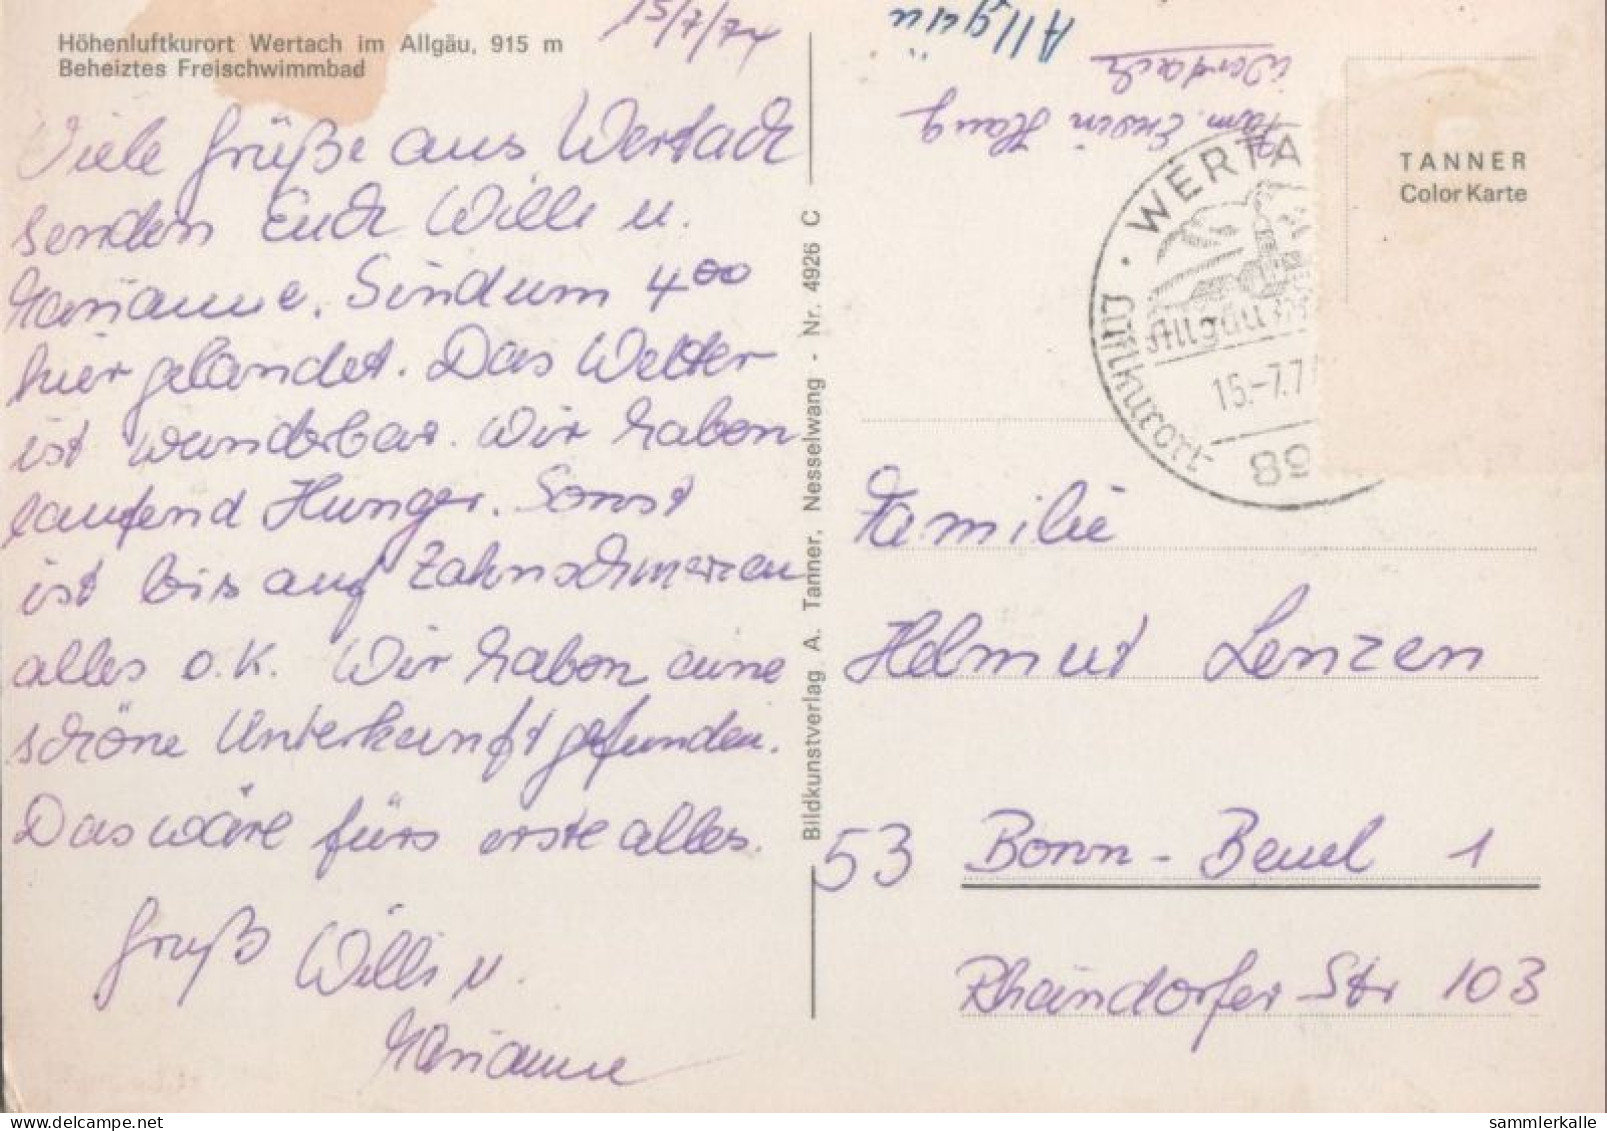 Höhenluftkurort Wertach im Allgäu, 915 m
Beheiztes Freischwimmbad
15/7/74
Viele Grüße aus Wertach
senden Euch Willi u.
Marianne. Sind um 4⁰⁰
hier gelandet. Das Wetter
ist wunderbar. Wir haben
laufend Hunger. Sonst
ist bis auf Zahnschmerzen
alles o.k. Wir haben eine
schöne Unterkunft gefunden.
Das wäre fürs erste alles.
Gruß Willi u.
Marianne
Bildkunstverlag A. Tanner, Nesselwang - Nr. 4926 C
Fam. Erwin Haug
Wertach
Allgäu
· WERTA
Allgäu
15.-7.7
Luftkurort
89
TANNER
Color Karte
Familie
Helmut Lenzen
53 Bonn-Beuel 1
Rhöndorfer Str 103
sammlerkalle